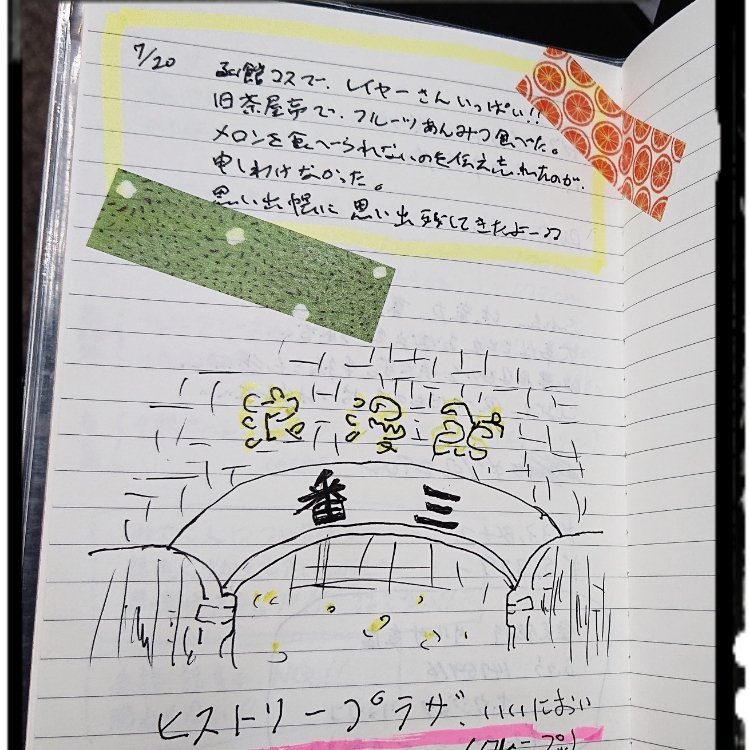 7/20
函館コスで、レイヤーさんいっぱい!!
旧茶屋亭で、フルーツあんみつ食べた。
メロンを食べられないのを伝え忘れたのが、
申しわけなかった。
思い出帳に 思い出残してきたよー♫
番 三
ヒストリープラザ、いいにおい